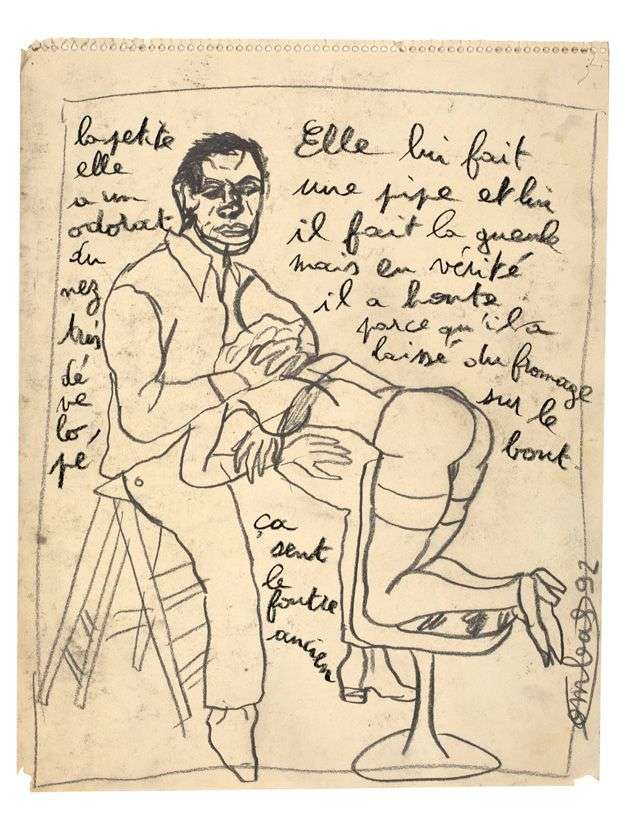 la petite
elle
a un
odorat
du
nez
très
dé
ve
lo,
pé
Elle lui fait
une pipe et lui
il fait la gueule
mais en vérité
il a honte
parce qu'il a
laissé du fromage
sur le
bout.
ça
sent
le
foutre
ancien
Combas 92